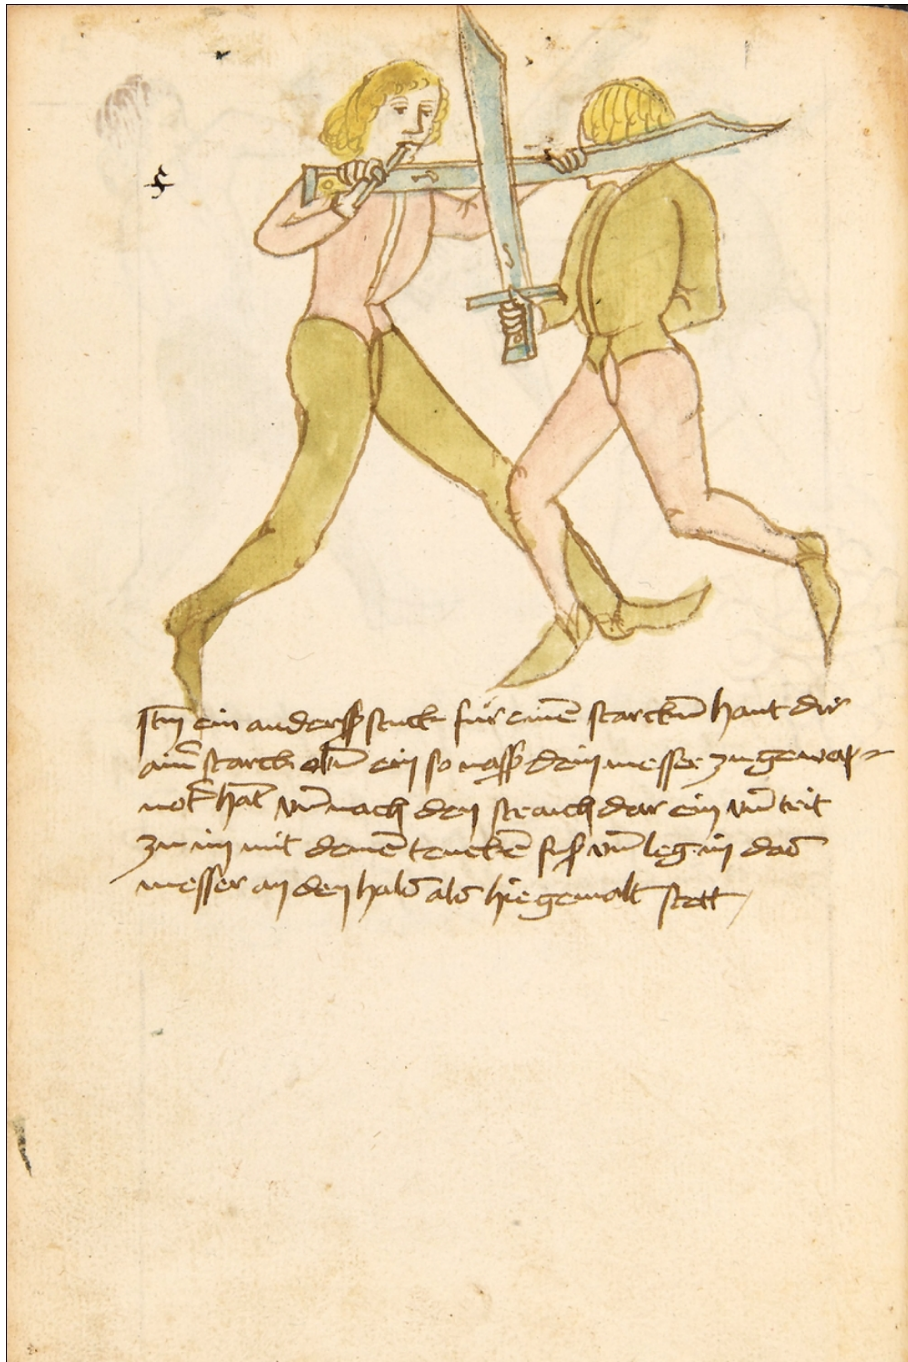 Itm̄ ein anderß stuck für einē starckn̄ haut dir
ain̄ starck obn̄ ein so vaß dein messer zu gewap=
not hat vn̄ nach den straich dar ein vn̄ trit
zu im mit denē rencken fuß vn̄ leg im das
messer an den hals als hie gemalt stett